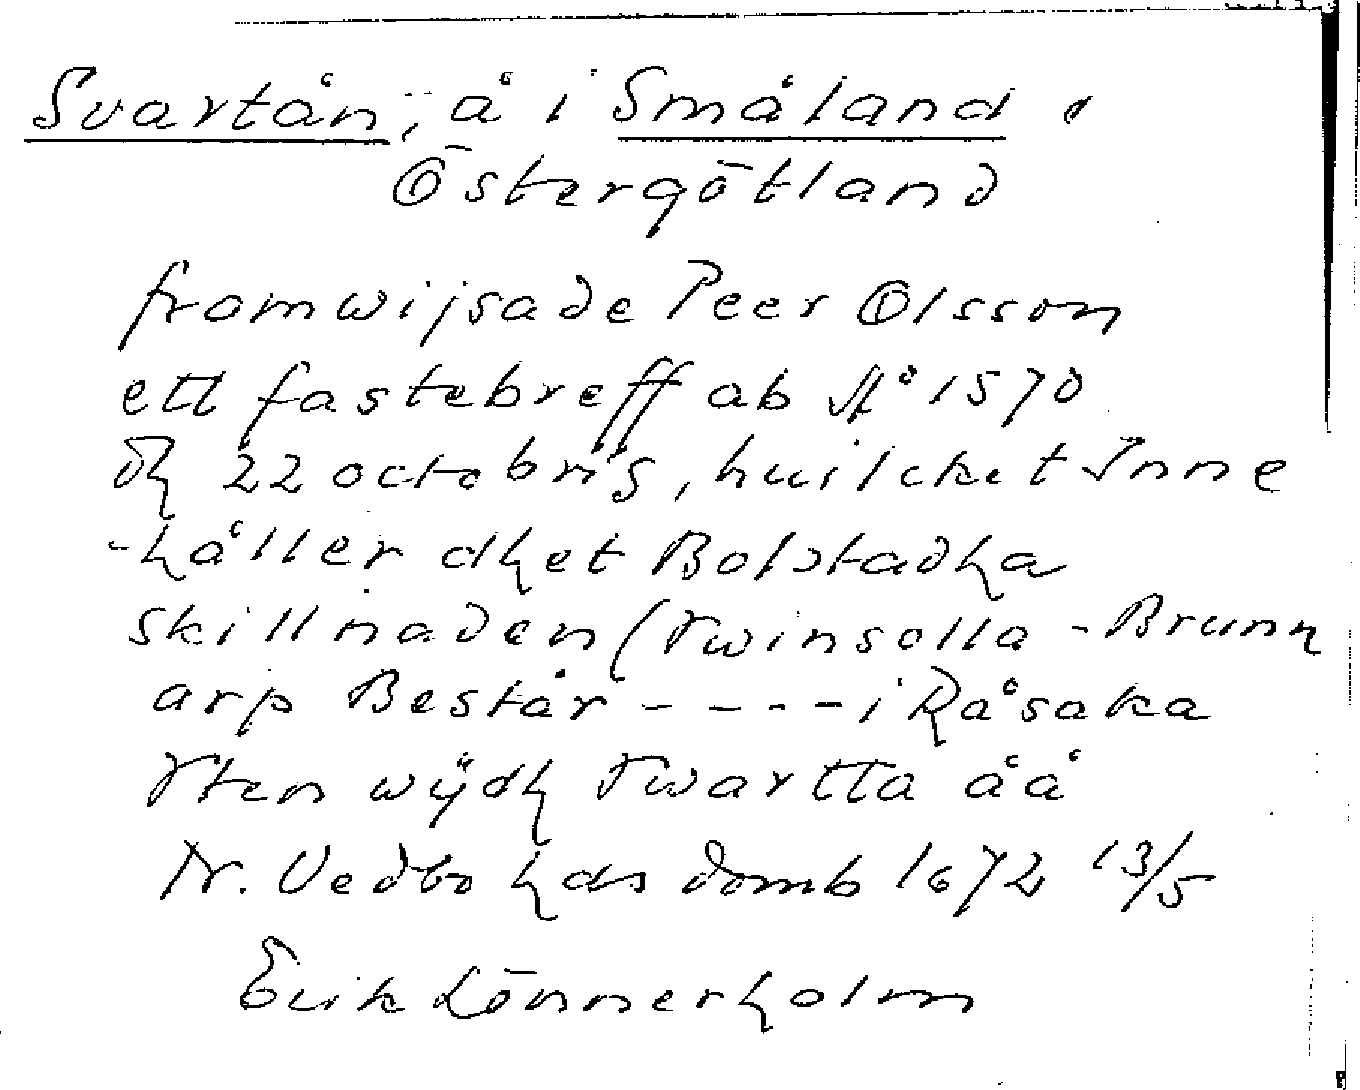 Svartån, å i Småland o
Östergötland
framwijsade Peer Olsson
ett fastebreff ab Aº 1570
dh 22 octobris, huilcket Inne
-håller dhet Bolstadha
skillnaden (Twinsolla - Brunn
arp Består - - - - i Råsaka
sten wÿdh Swartta åå
N. Vedbo hds domb 1672 13/5
Erik Lönnerholm